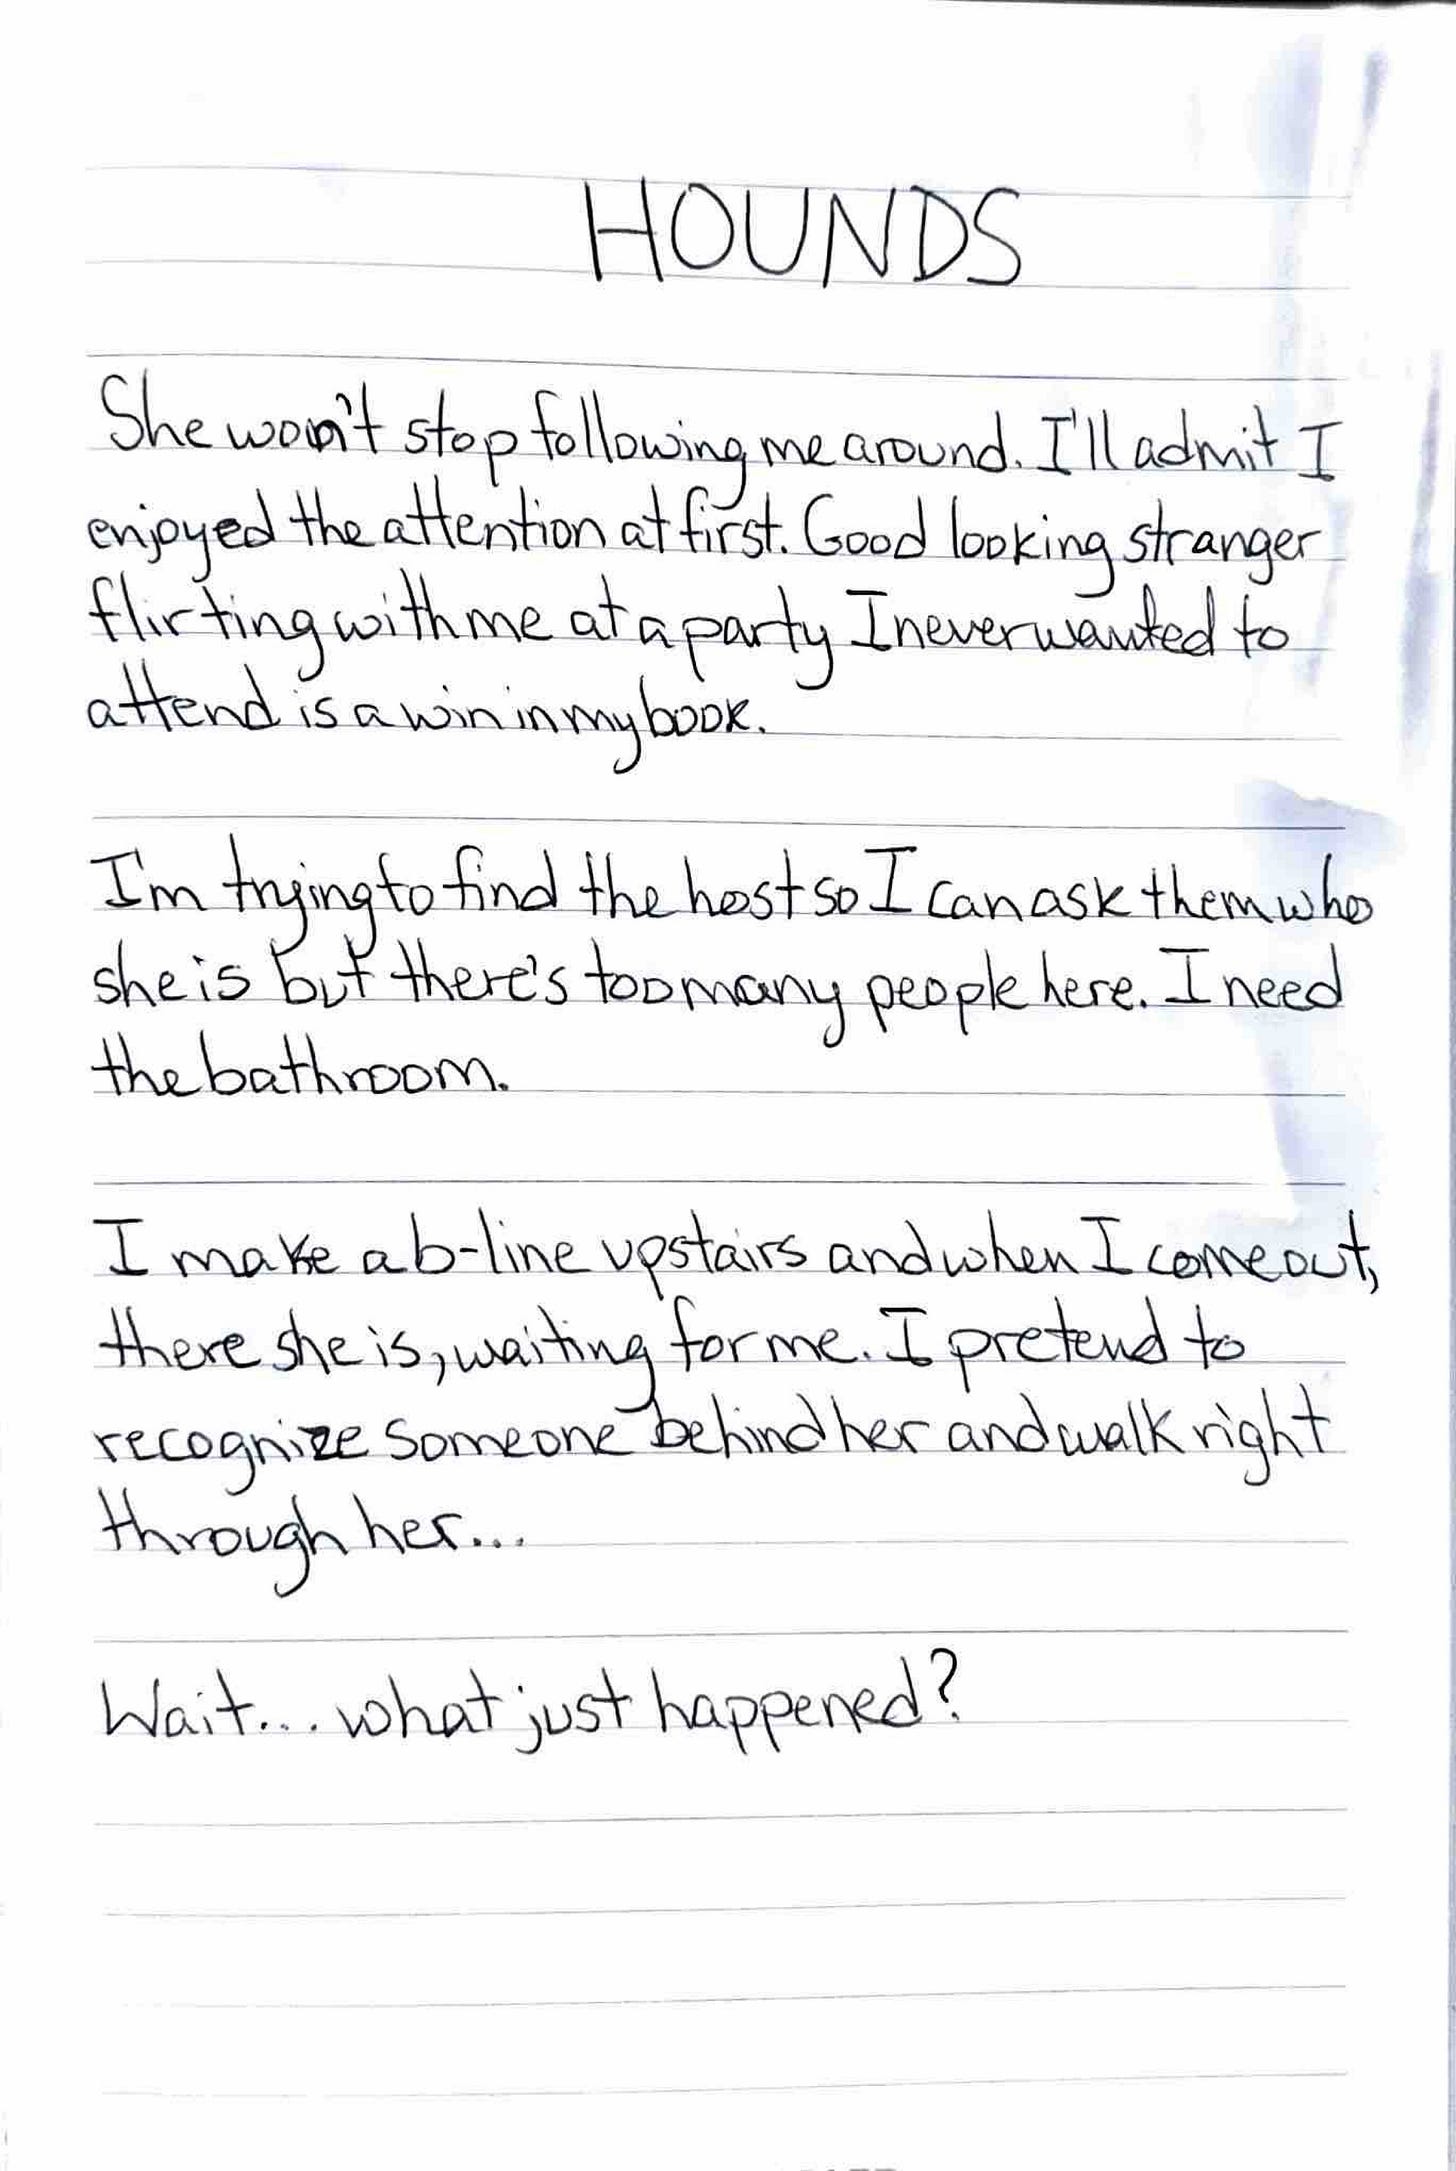 HOUNDS
She won't stop following me around. I'll admit I
enjoyed the attention at first. Good looking stranger
flirting with me at a party I never wanted to
attend is a win in my book.
I'm trying to find the host so I can ask them who
she is but there's too many people here. I need
the bathroom.
I make a b-line upstairs and when I come out,
there she is, waiting for me. I pretend to
recognize someone behind her and walk right
through her...
Wait... what just happened?